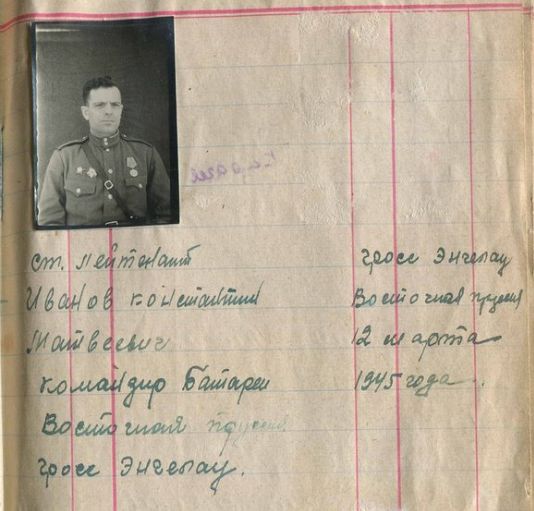 ст. лейтенант
Иванов константин
Матвеевич
командир Батареи
Восточная пруссия
гросс Энгелау.
гросс Энгелау
Восточная пруссия
12 марта
1945 года.